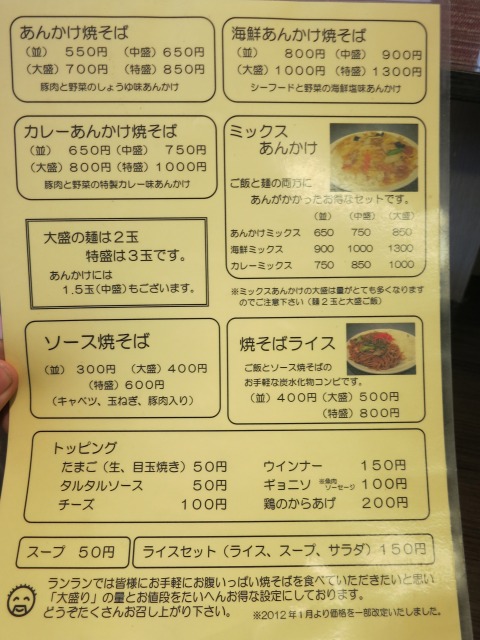 あんかけ焼そば
（並） 550円 （中盛）650円
（大盛）700円 （特盛）850円
豚肉と野菜のしょうゆ味あんかけ
海鮮あんかけ焼そば
（並） 800円 （中盛） 900円
（大盛）1000円 （特盛）1300円
シーフードと野菜の海鮮塩味あんかけ
カレーあんかけ焼そば
（並） 650円（中盛） 750円
（大盛）800円（特盛）1000円
豚肉と野菜の特製カレー味あんかけ
ミックス
あんかけ
ご飯と麺の両方に
あんがかかったお得なセットです。
（並） （中盛） （大盛）
あんかけミックス 650 750 850
海鮮ミックス 900 1000 1300
カレーミックス 750 850 1000
※ミックスあんかけの大盛は量がとても多くなります
のでご注意下さい（麺2玉と大盛ご飯）
大盛の麺は2玉
特盛は3玉です。
あんかけには
1.5玉（中盛）もございます。
ソース焼そば
（並） 300円 （大盛）400円
（特盛）600円
（キャベツ、玉ねぎ、豚肉入り）
焼そばライス
ご飯とソース焼そばの
お手軽な炭水化物コンビです。
（並）400円（大盛）500円
（特盛）800円
トッピング
たまご（生、目玉焼き）50円
タルタルソース 50円
チーズ 100円
ウインナー 150円
ギョニソ ※魚肉ソーセージ 100円
鶏のからあげ 200円
スープ 50円
ライスセット（ライス、スープ、サラダ）150円
ランランでは皆様にお手軽にお腹いっぱい焼そばを食べていただきたいと思い
「大盛り」の量とお値段をたいへんお得な設定にしております。
どうぞたくさんお召し上がり下さい。 ※2012年1月より価格を一部改定いたしました。